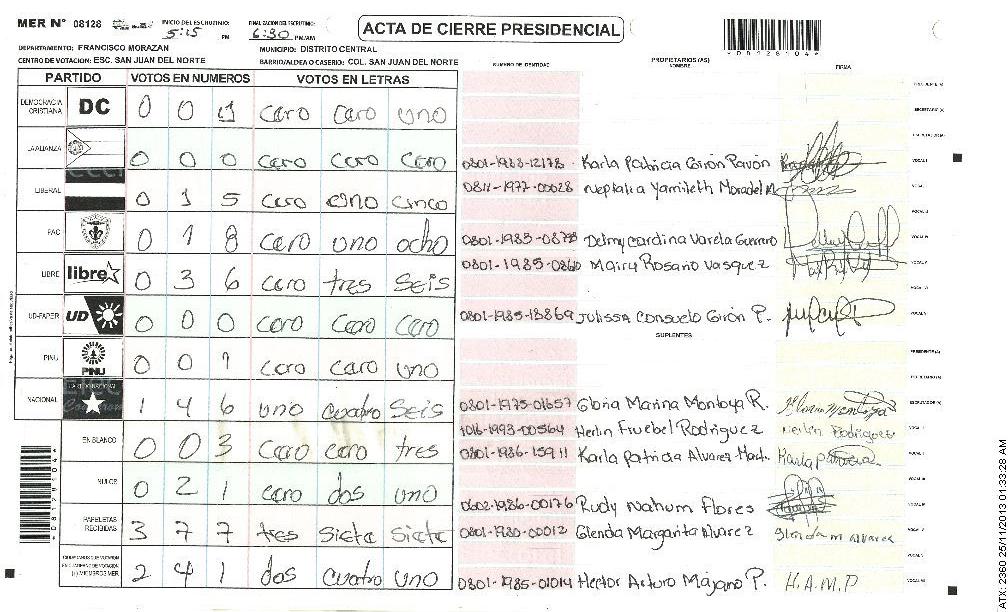 MER N° 08128 INICIO DEL ESCRUTINIO: 5:15 PM FINALIZACION DEL ESCRUTINIO: 6:30 PM/AM
ACTA DE CIERRE PRESIDENCIAL
*08128104*
DEPARTAMENTO: FRANCISCO MORAZAN MUNICIPIO: DISTRITO CENTRAL
CENTRO DE VOTACION: ESC. SAN JUAN DEL NORTE BARRIO/ALDEA O CASERIO: COL. SAN JUAN DEL NORTE
PARTIDO VOTOS EN NUMEROS VOTOS EN LETRAS
DEMOCRACIA CRISTIANA DC 0 0 1 cero cero uno
LA ALIANZA 0 0 0 cero cero cero
LIBERAL 0 1 5 cero uno cinco
PAC 0 1 8 cero uno ocho
LIBRE libre 0 3 6 cero tres seis
UD-FAPER UD 0 0 0 cero cero cero
PINU PINU 0 0 1 cero cero uno
NACIONAL 1 4 6 uno cuatro seis
EN BLANCO 0 0 3 cero cero tres
NULOS 0 2 1 cero dos uno
PAPELETAS RECIBIDAS 3 7 7 tres siete siete
2 4 1 dos cuatro uno
*08128104*
NUMERO DE IDENTIDAD PROPIETARIOS (AS) NOMBRE FIRMA
PRESIDENTE (A)
SECRETARIO (A)
ESCRUTADOR (A)
0801-1983-12178 Karla Patricia Girón Pavón VOCAL I
0811-1977-00028 Neptalia Yamileth Moradel M. VOCAL
0801-1985- Delmy Cardina Varela Guerrero VOCAL
0801-1985- Mairy Rosario Vasquez VOCAL
0801-1985-18869 Julissa Consuelo Girón P. VOCAL
SUPLENTES
PRESIDENTE (A)
SECRETARIO (A)
0801-1975-01657 Gloria Marina Montoya R. ESCRUTADOR (A)
1016-1993-00564 Herlin Fruebel Rodriguez Herlin Rodriguez VOCAL
0801-1986-15911 Karla Patricia Alvarez Mart. Karla Patricia VOCAL
0602-1986-00176 Rudy Nahum Flores VOCAL
0801-1980-00012 Glenda Margarita Alvarez Glenda M Alvarez VOCAL
0801-1985-01014 Hector Arturo Májano P. H.A.M.P VOCAL
ATX-2360 25/11/2013 01:33:28 AM